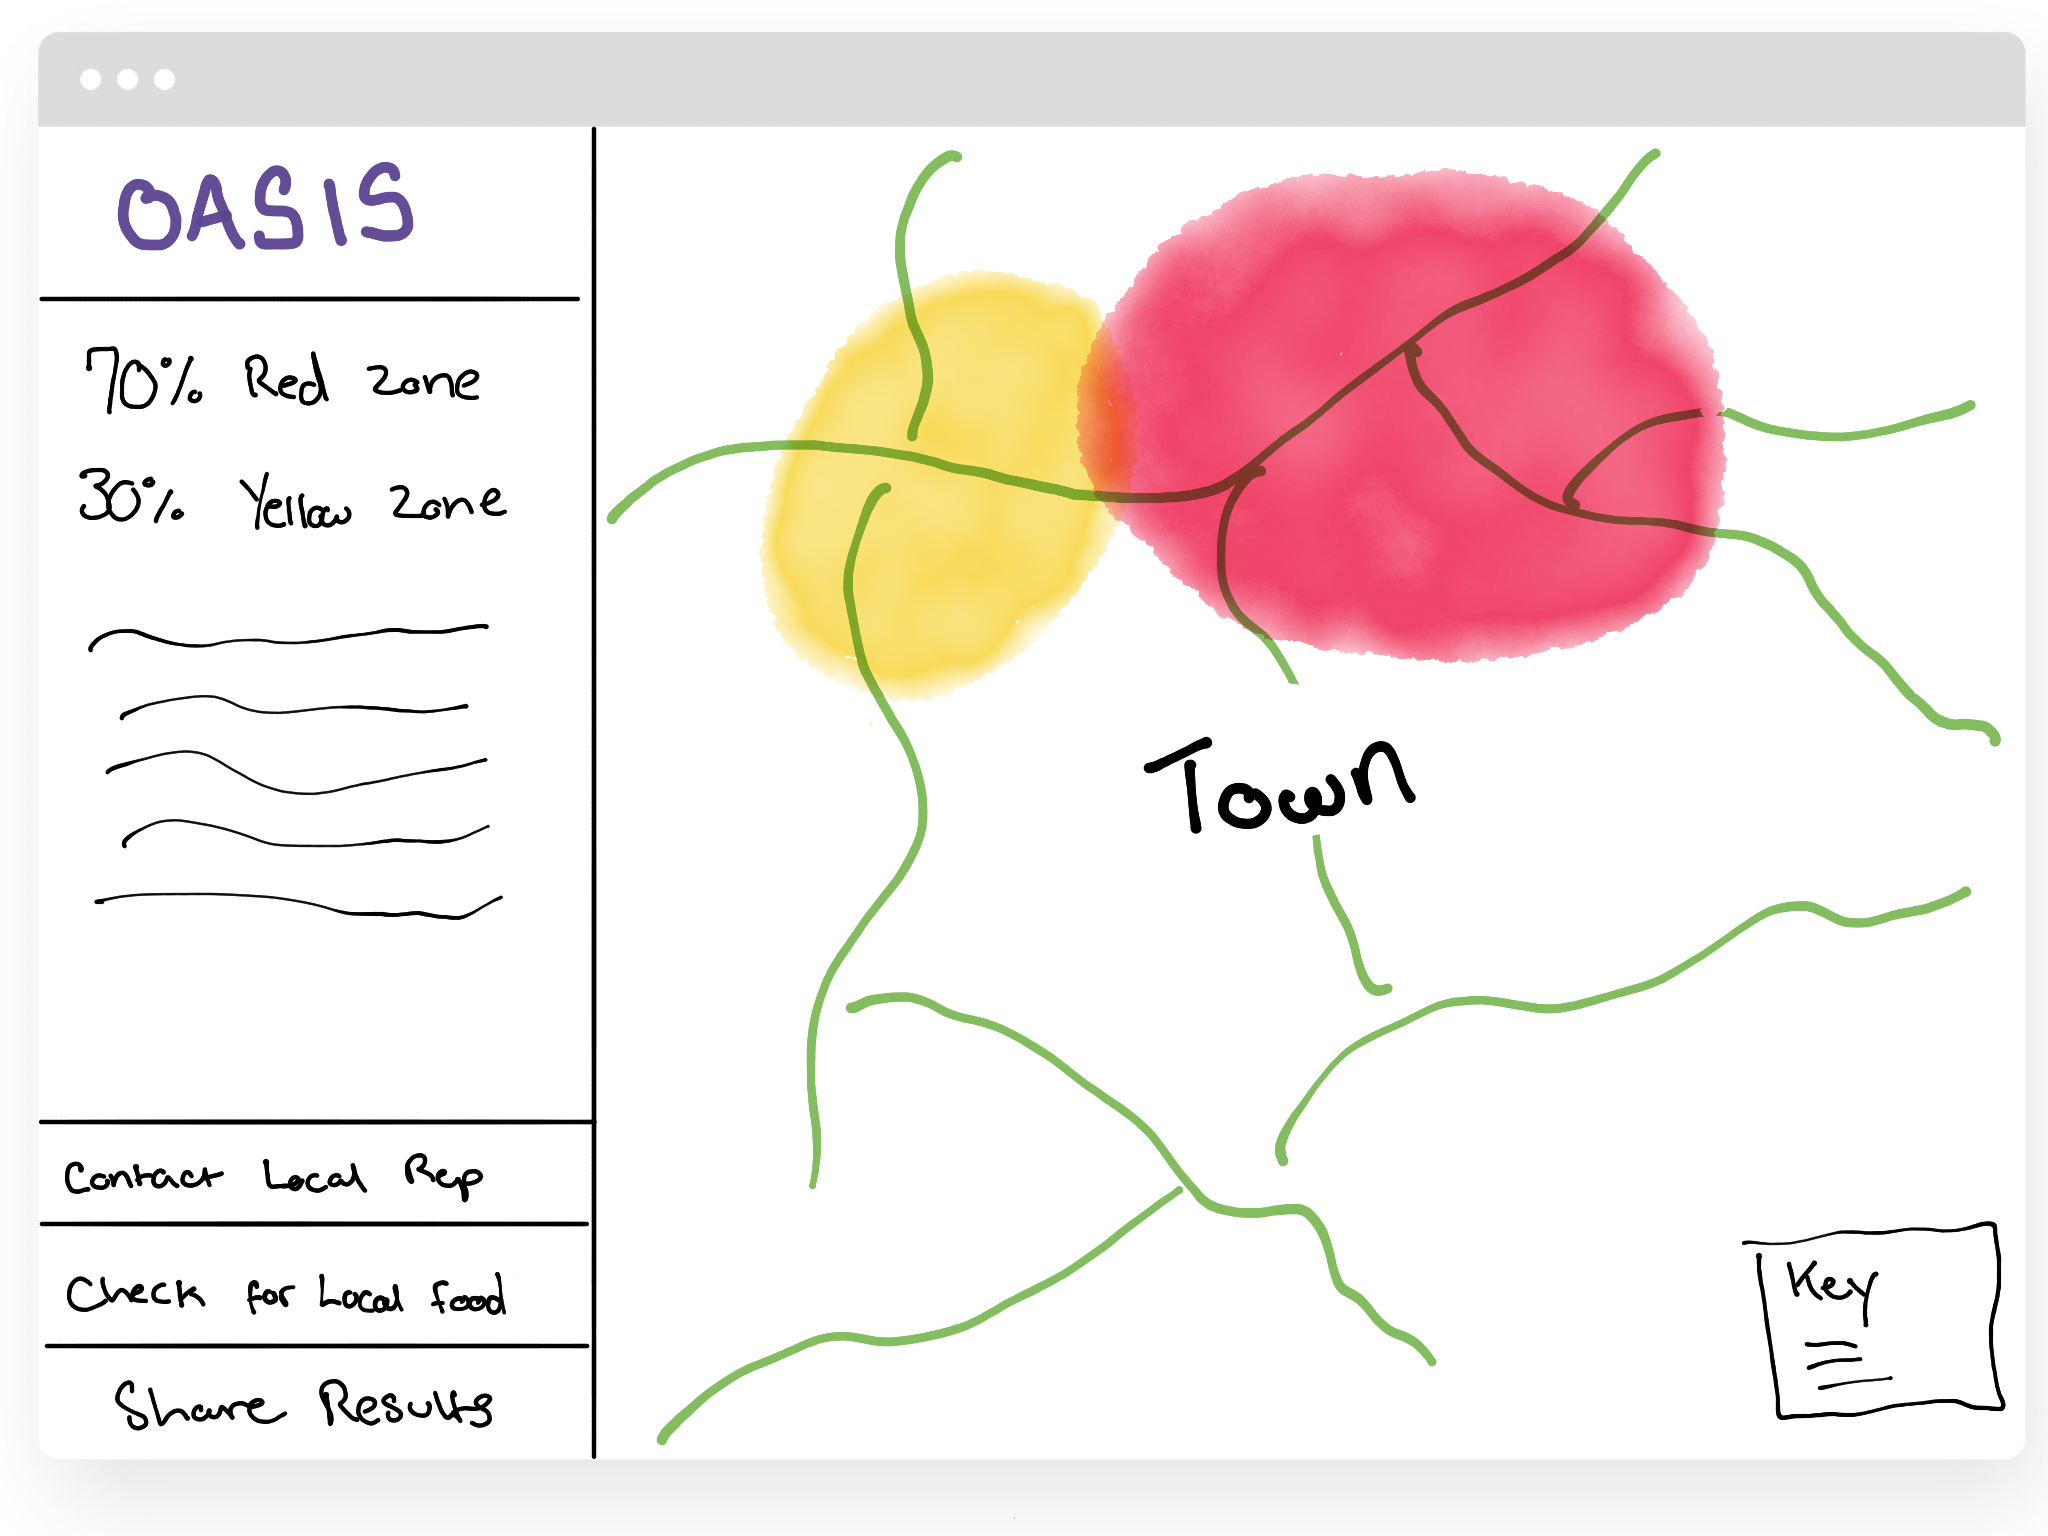 OASIS
70% Red zone
30% Yellow zone
Contact Local Rep
Check for Local food
Share Results
Town
Key